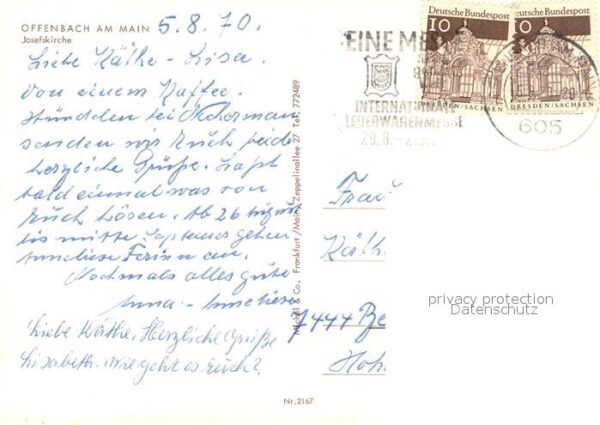 OFFENBACH AM MAIN
Josefskirche
5.8.70.
Liebe Käthe - Lisa.
Von einem Kaffee.
Stündchen bei
senden wir Euch beide
herzliche Grüße. Laßt
bald einmal was von
Euch hören. Ab 26
bis mitte gehen
Anneliese Ferien an.
Nochmals alles gute
Anna - Anneliese
Liebe Käthe, Herzliche Grüße
Lisabeth. Wie geht es Euch?
& Co. Frankfurt/Main, Zeppelinallee 27 Tel. 772489
Nr. 2167
Deutsche Bundespost
10
DRESDEN/SACHSEN
Deutsche Bundespost
DRESDEN/SACHSEN
EINE
INTERNATIONALE
LEDERWARENMESSE
29.8.-
605
Frau
Käth
7444 Be
Hoh
privacy protection
Datenschutz